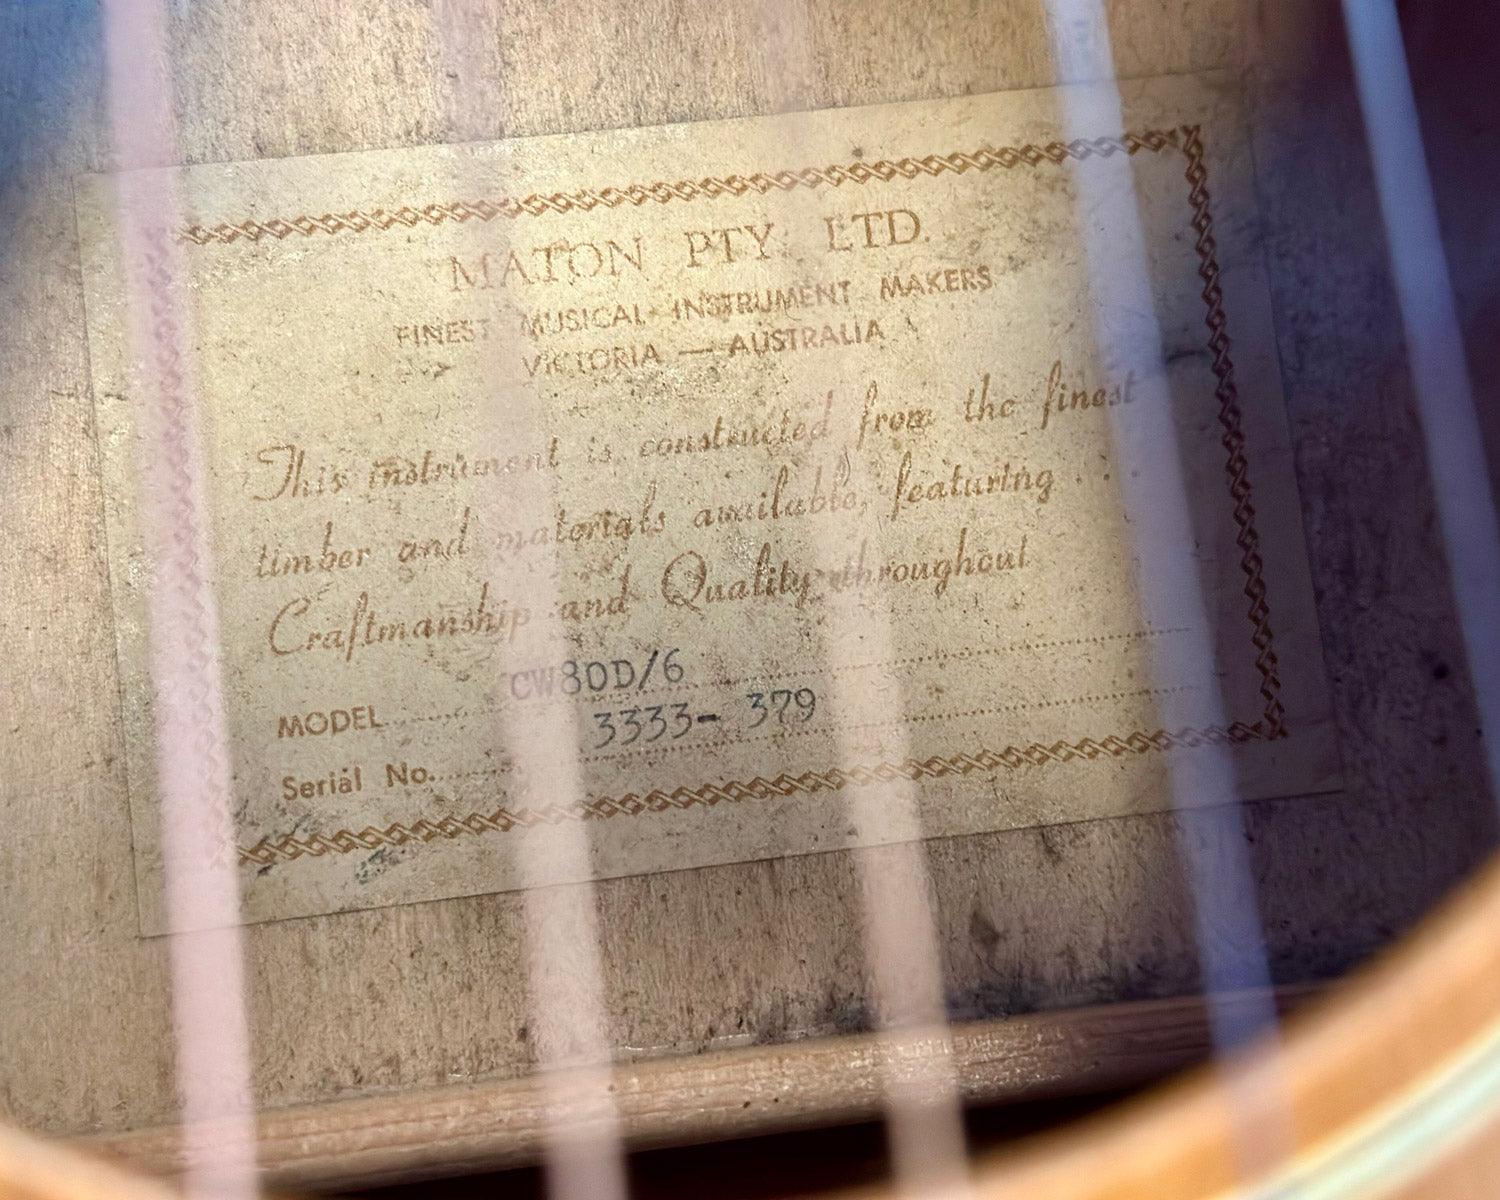 MATON PTY. LTD.
FINEST MUSICAL INSTRUMENT MAKERS
VICTORIA — AUSTRALIA
This instrument is constructed from the finest
timber and materials available, featuring . . .
Craftmanship and Quality throughout
MODEL CW80D/6
Serial No. 3333- 379